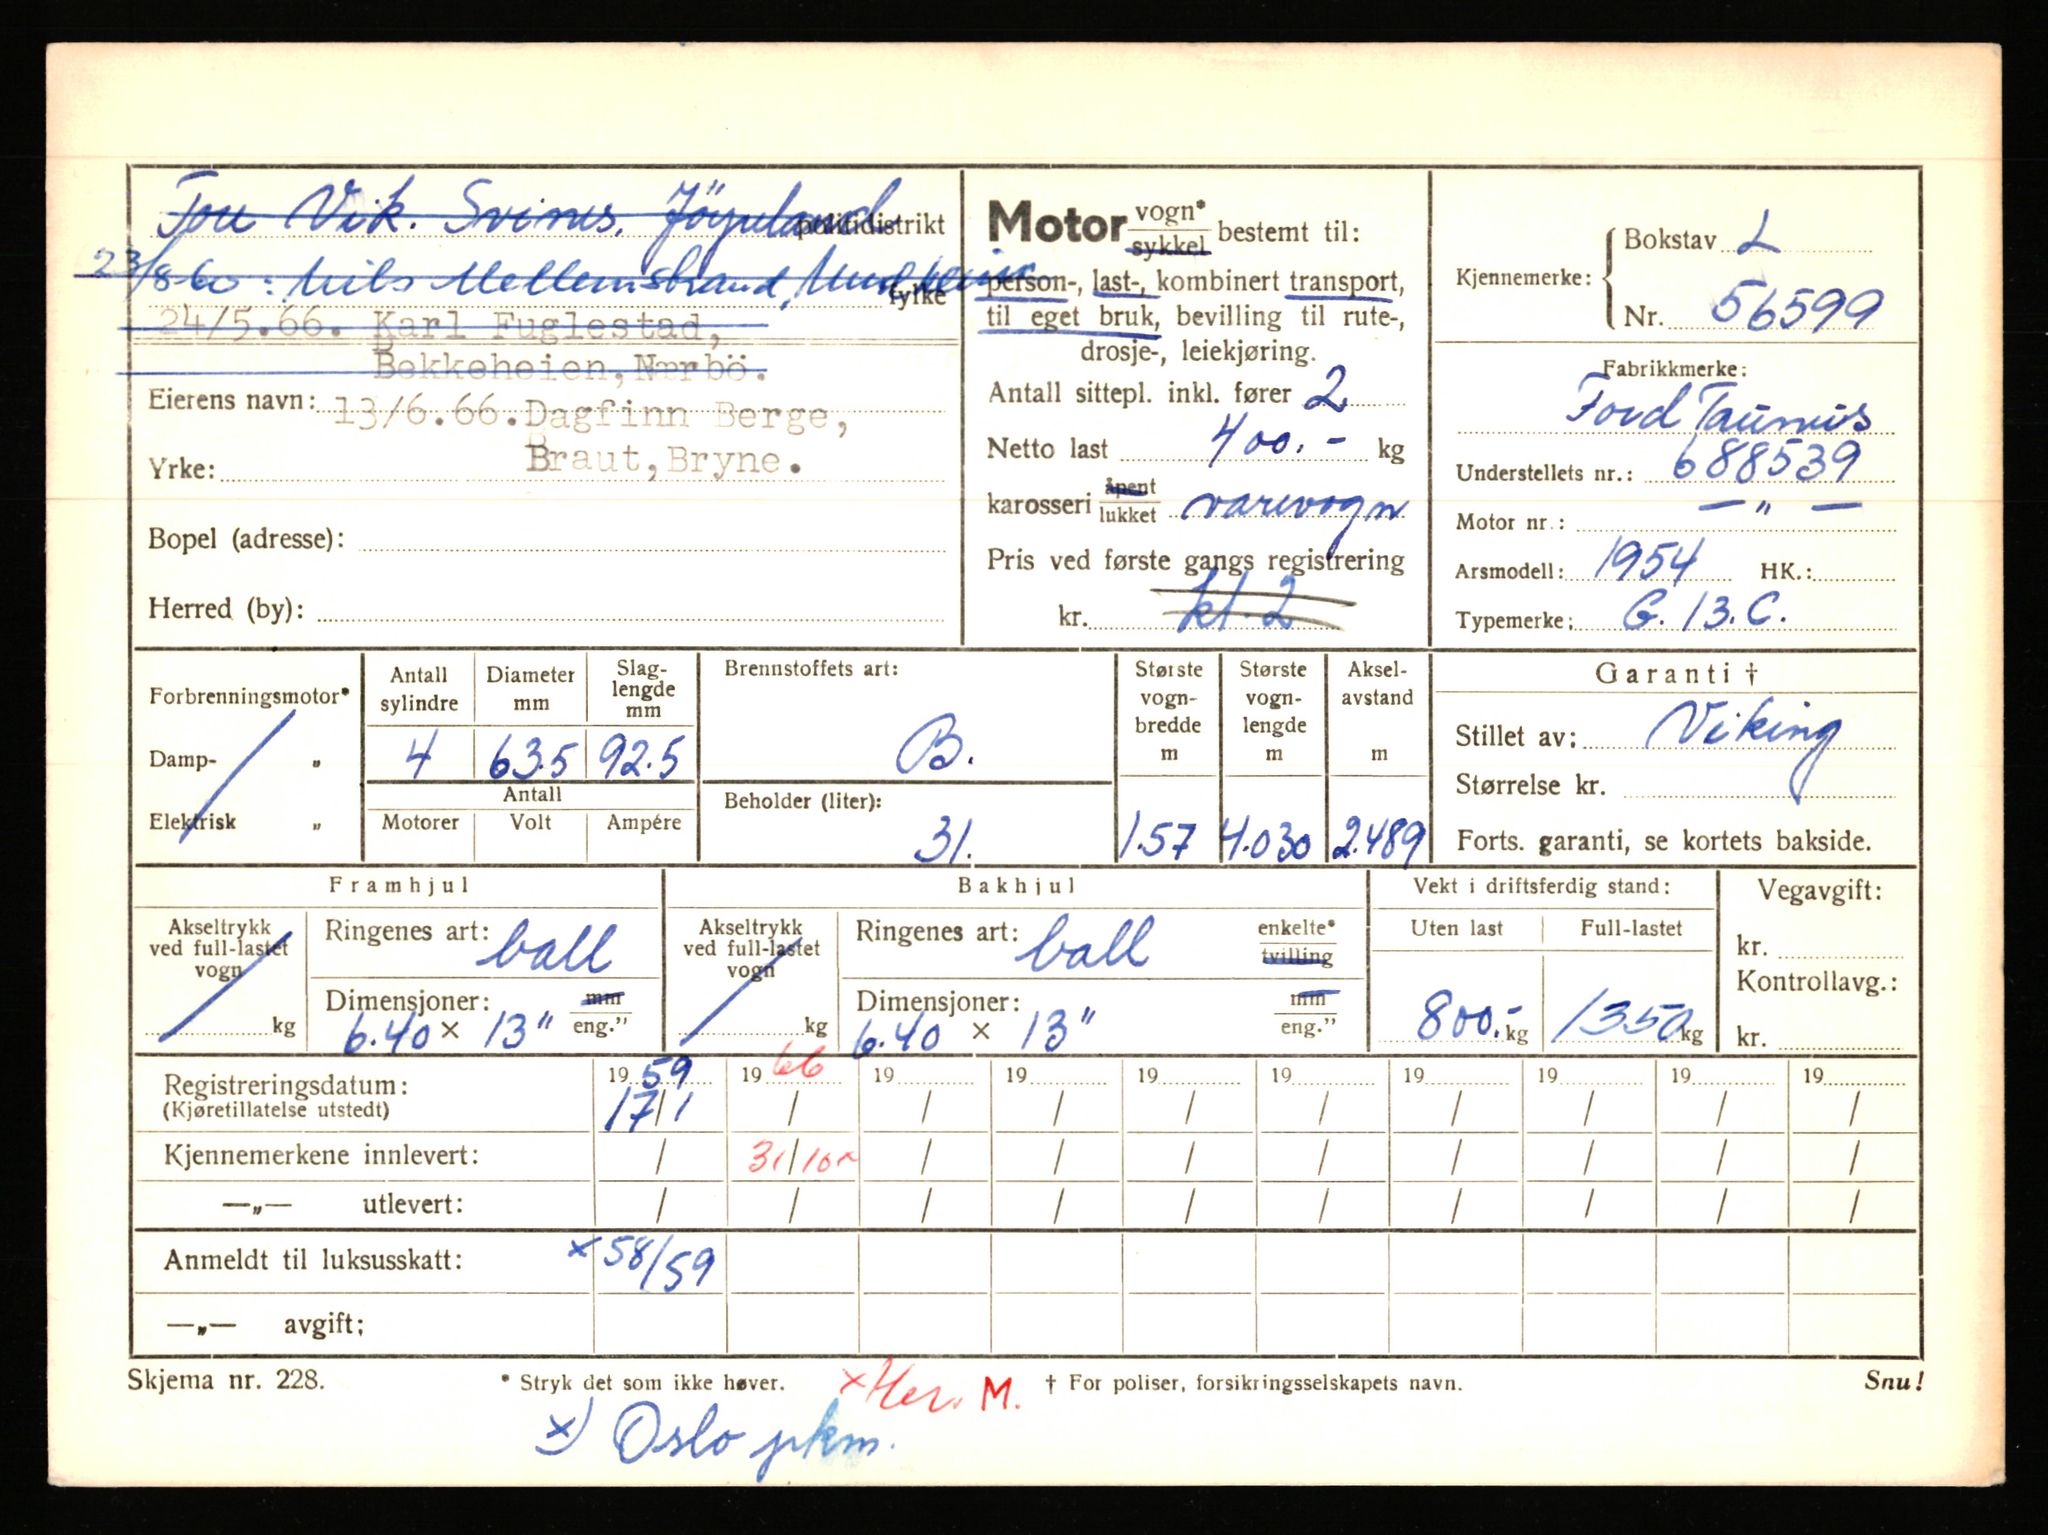 Tou Vik. Svines, Jörpeland politidistrikt
23/8-60: Nils Mellemstrand, fylke
24/5.66. Karl Fuglestad,
Bekkeheien, Nærbö.
Eierens navn: 13/6.66. Dagfinn Berge,
Yrke: Braut, Bryne.
Bopel (adresse):
Herred (by):
Motor vogn* sykkel bestemt til:
person-, last-, kombinert transport,
til eget bruk, bevilling til rute-,
drosje-, leiekjøring.
Antall sittepl. inkl. fører 2
Netto last 400.- kg
karosseri åpent lukket varevogn
Pris ved første gangs registrering
kr. kl. 2
Kjennemerke: Bokstav L
Nr. 56599
Fabrikkmerke:
Ford Taunus
Understellets nr.: 688539
Motor nr.: — „ —
Arsmodell: 1954 HK.:
Typemerke: G. 13. C.
Forbrenningsmotor*
Damp- „
Elektrisk „
Antall sylindre Diameter mm Slag-lengde mm
4 63.5 92.5
Antall
Motorer Volt Ampére
Brennstoffets art:
B.
Beholder (liter):
31.
Største vogn-bredde m
1.57
Største vogn-lengde m
4.030
Aksel-avstand m
2.489
Garanti †
Stillet av: Viking
Størrelse kr.
Forts. garanti, se kortets bakside.
Framhjul
Akseltrykk ved full-lastet vogn
kg
Ringenes art: ball
Dimensjoner: mm
6.40 × 13" eng."
Bakhjul
Akseltrykk ved full-lastet vogn
kg
Ringenes art: ball enkelte* tvilling
Dimensjoner: mm
6.40 × 13" eng."
Vekt i driftsferdig stand:
Uten last Full-lastet
800.- kg 1350 kg
Vegavgift:
kr.
Kontrollavg.:
kr.
Registreringsdatum: 19 59 19 66 19 19 19 19 19 19 19 19
(Kjøretillatelse utstedt) 17/1 / / / / / / / / /
Kjennemerkene innlevert: / 31/10x / / / / / / / /
—„— utlevert: / / / / / / / / / /
Anmeldt til luksusskatt: × 58/59
—„— avgift:
Skjema nr. 228. * Stryk det som ikke høver. × Her. M. † For poliser, forsikringsselskapets navn. Snu!
×) Oslo pkm.